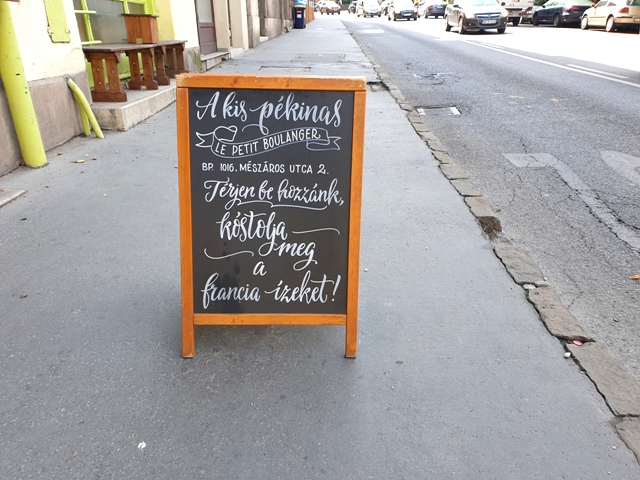 A kis pékinas
LE PETIT BOULANGER
BP. 1016. MÉSZÁROS UTCA 2.
Térjen be hozzánk,
kóstolja
meg
a
francia ízeket!